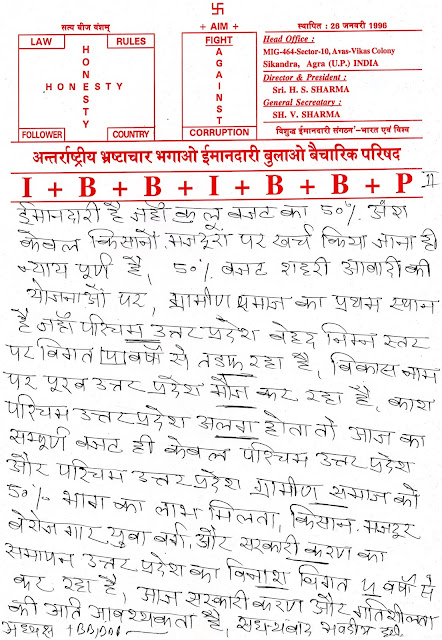 卐
सत्य बीज वंशम्
+ AIM +
स्थापित : 26 जनवरी 1996
LAW
RULES
HONESTY
HONESTY
FOLLOWER
COUNTRY
FIGHT
AGAINST
CORRUPTION
Head Office :
MIG-464-Sector-10, Avas-Vikas Colony
Sikandra, Agra (U.P.) INDIA
Director & President :
Sri. H. S. SHARMA
General Secreatary :
SH. V. SHARMA
'विशुद्ध ईमानदारी संगठन'-भारत एवं विश्व
अन्तर्राष्ट्रीय भ्रष्टाचार भगाओ ईमानदारी बुलाओ बैचारिक परिषद
I + B + B + I + B + B + P
ईमानदारी है जहाँ बजट का 50% अंश
केवल किसानों, मजदूरों पर खर्च किया जाना ही
न्याय पूर्ण है, 50% बजट शहरी आबादी की
योजनाओं पर, ग्रामीण समाज का प्रथम स्थान
है जहाँ पश्चिम उत्तर प्रदेश बेहद निम्न स्तर
पर विगत वर्षों से तड़फ रहा है, विकास नाम
पर पूरव उत्तर प्रदेश मौज कर रहा है, काश
पश्चिम उत्तर प्रदेश अलग होता तो आज का
सम्पूर्ण बजट ही केवल पश्चिम उत्तर प्रदेश
और पश्चिम उत्तर प्रदेश ग्रामीण समाज को
50% भाग का लाभ मिलता, किसान, मजदूर
बेरोजगार, युवा वर्ग, और सरकारी करण का
समापन उत्तर प्रदेश का विनाश विगत वर्षों से
कर रहा है, आज सरकारी करण और गतिशीलता
की अति आवश्यकता है,
अध्यक्ष